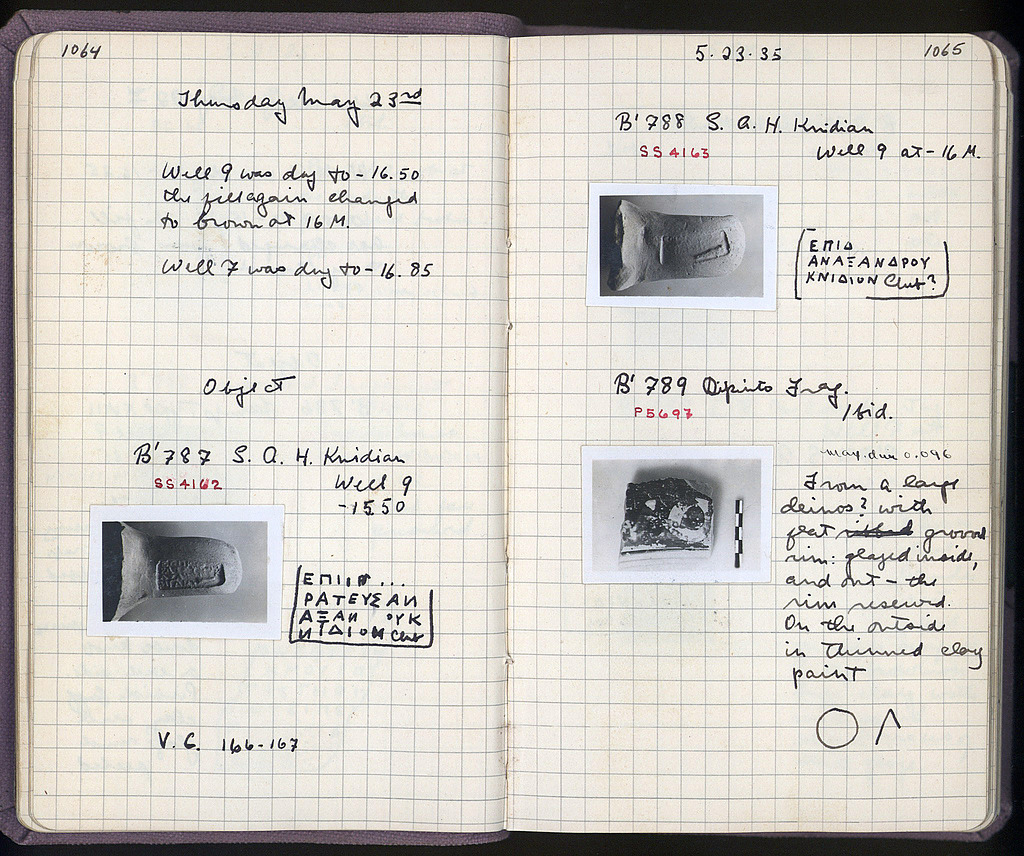 1064
Thursday May 23rd
Well 9 was dug to - 16.50
the fill again changed
to brown at 16 M.
Well 7 was dug to - 16.85
Object
B' 787 S. A. H. Knidian
SS 4162
Well 9
-15.50
ΕΠΙΠ ...
ΡΑΤΕΥΣΑΝ
ΑΞΑΝ ΟΥΚ
ΝΙΔΙΟΝ Club
V. G. 166-167
5·23·35
1065
B' 788 S. A. H. Knidian
SS 4163
Well 9 at - 16 M.
ΕΠΙΔ
ΑΝΑΞΑΝΔΡΟΥ
ΚΝΙΔΙΟΝ Club?
B' 789 Dipinto Frag.
P 5697
Ibid.
max. dim 0.096
From a large
deinos? with
flat grooved
rim: glazed inside,
and out – the
rim reserved.
On the outside
in thinned clay
paint
Ο Λ